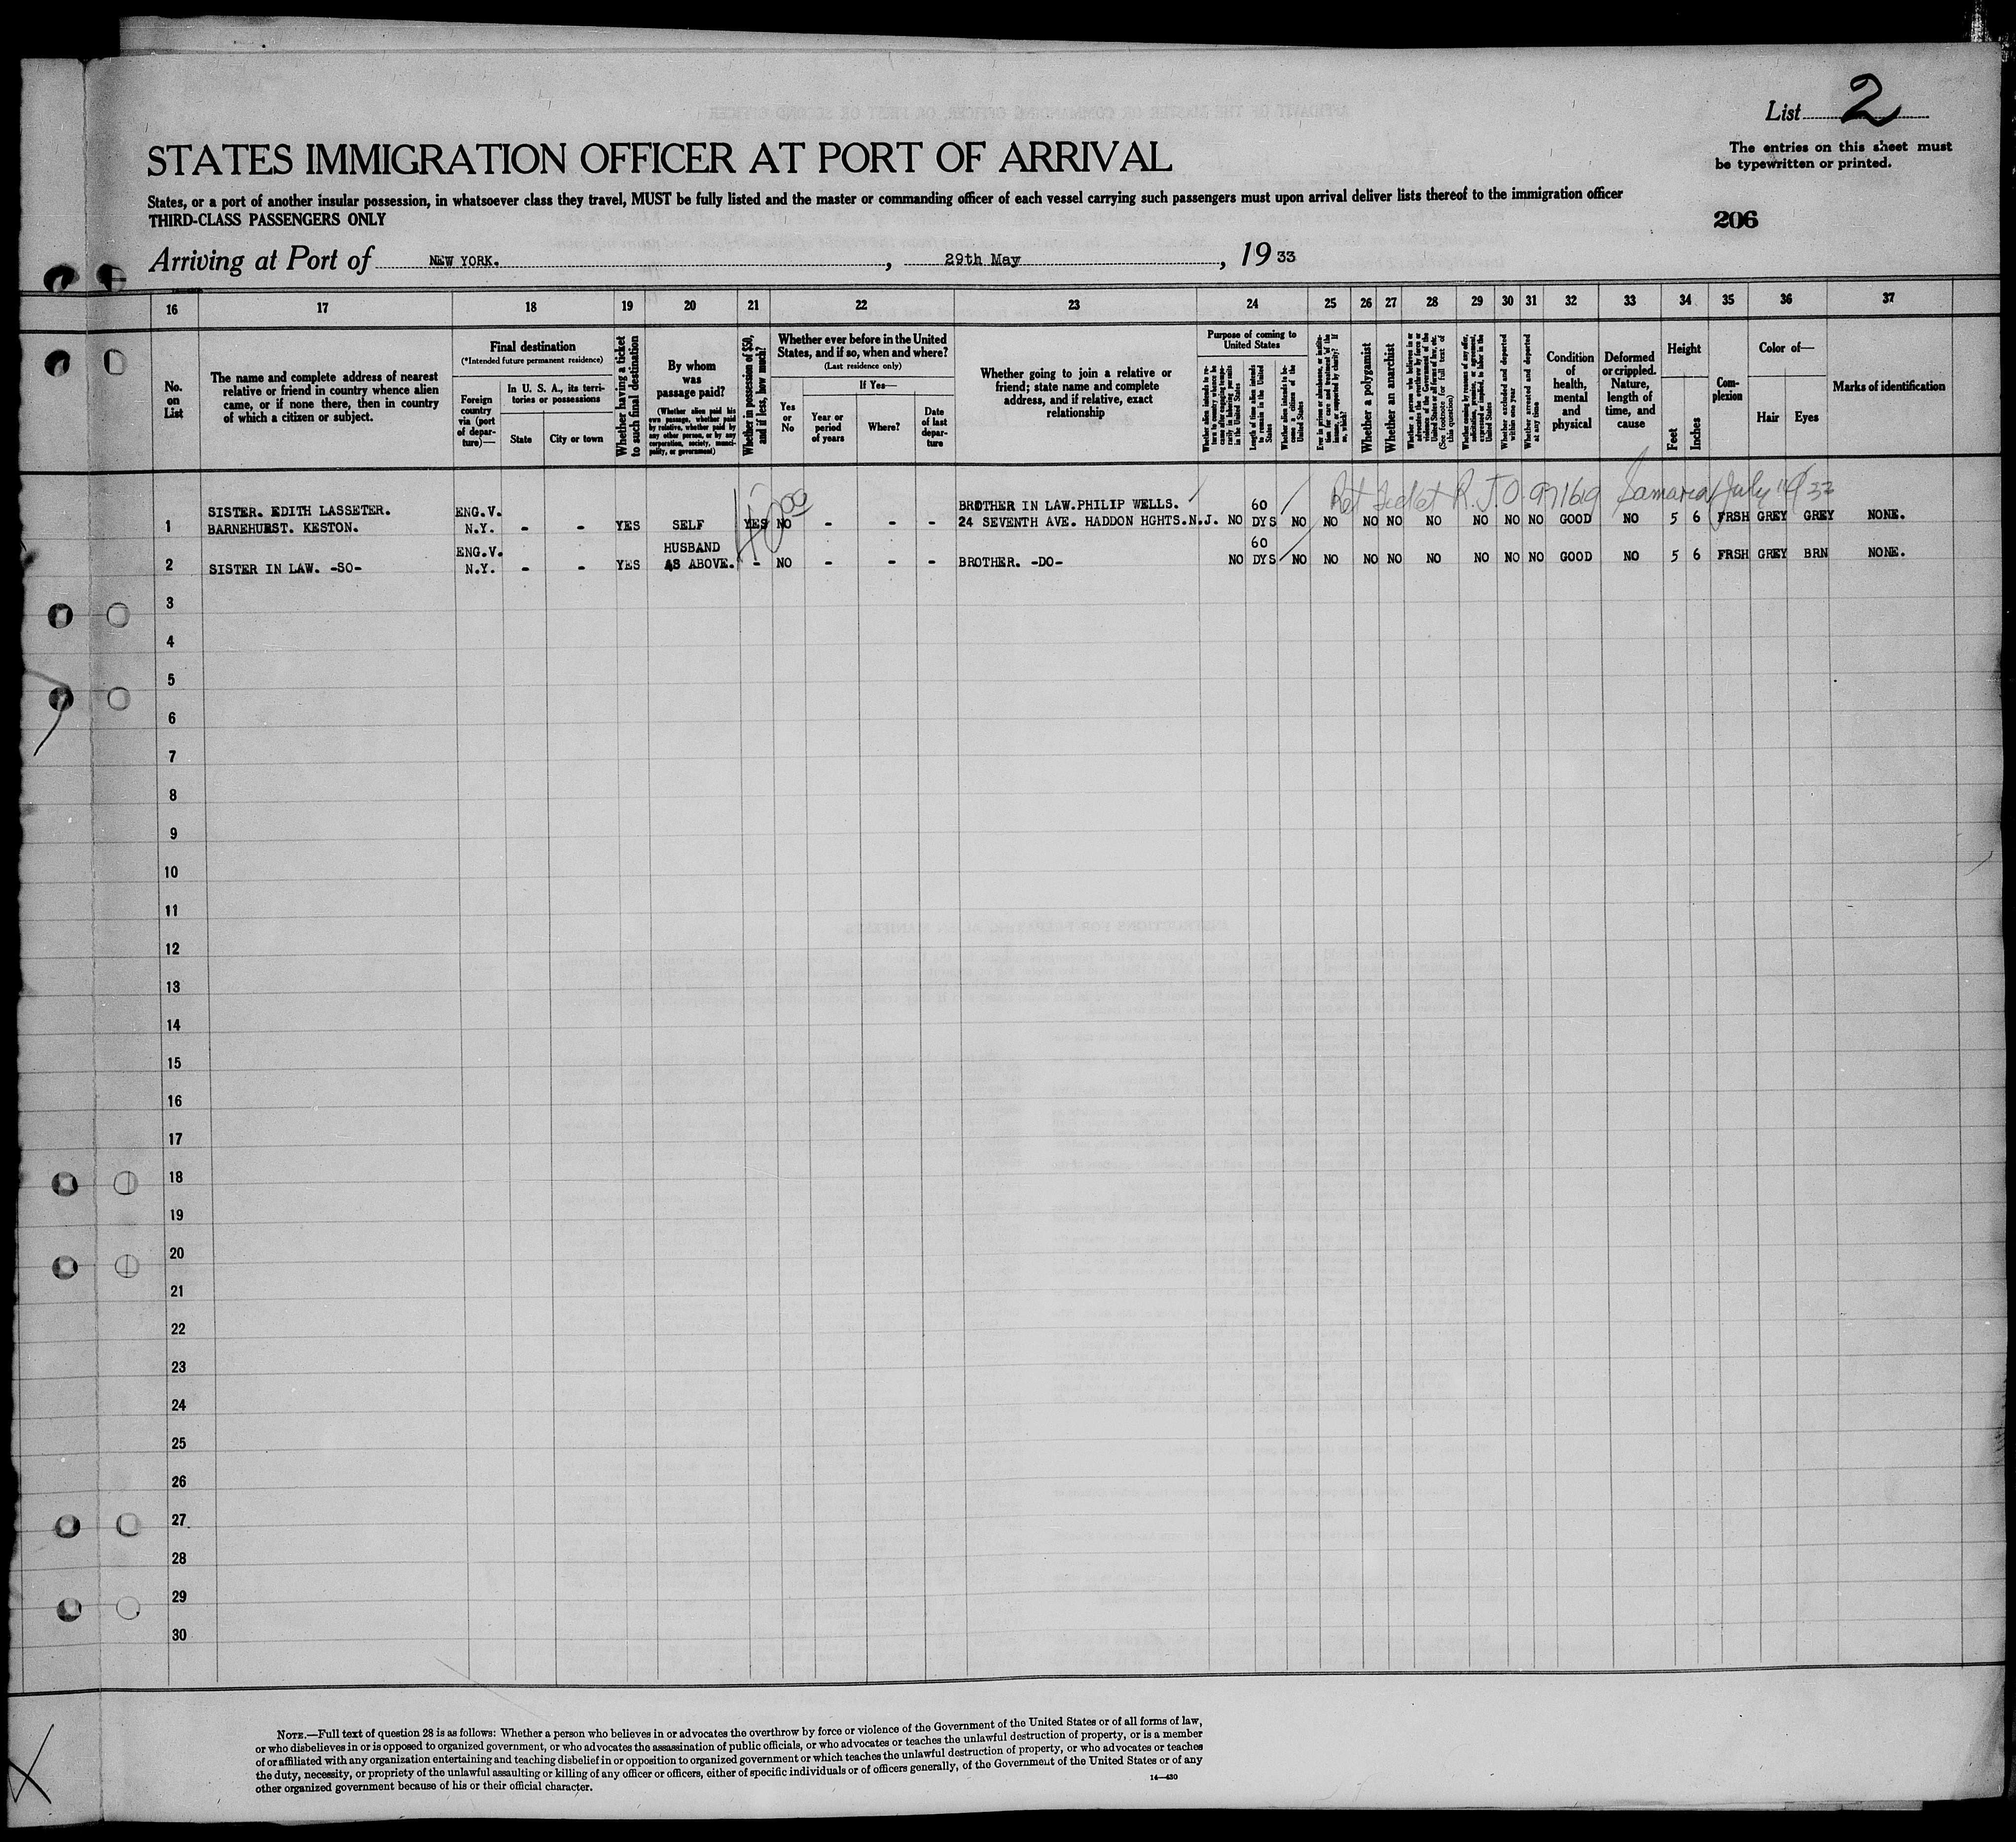 List 2
The entries on this sheet must
be typewritten or printed.
STATES IMMIGRATION OFFICER AT PORT OF ARRIVAL
States, or a port of another insular possession, in whatsoever class they travel, MUST be fully listed and the master or commanding officer of each vessel carrying such passengers must upon arrival deliver lists thereof to the immigration officer
THIRD-CLASS PASSENGERS ONLY
206
Arriving at Port of NEW YORK. , 29th May , 19 33
16 17 18 19 20 21 22 23 24 25 26 27 28 29 30 31 32 33 34 35 36 37
No.
on
List
The name and complete address of nearest
relative or friend in country whence alien
came, or if none there, then in country
of which a citizen or subject.
Final destination
(*Intended future permanent residence)
Foreign
country
via (port
of depar-
ture)—
In U. S. A., its terri-
tories or possessions
State
City or town
Whether having a ticket
to such final destination
By whom
was
passage paid?
(Whether alien paid his
own passage, whether paid
by relative, whether paid by
any other person, or by any
corporation, society, munici-
pality, or government)
Whether in possession of $50,
and if less, how much?
Whether ever before in the United
States, and if so, when and where?
(Last residence only)
If Yes—
Yes
or
No
Year or
period
of years
Where?
Date
of last
depar-
ture
Whether going to join a relative or
friend; state name and complete
address, and if relative, exact
relationship
Purpose of coming to
United States
Whether alien intends to re-
turn to country whence he
came after engaging tempo-
rarily in laboring pursuits
in the United States
Length of time alien intends
to remain in the United
States
Whether alien intends to be-
come a citizen of the
United States
Ever in prison or almshouse, or institu-
tion for care and treatment of the
insane, or supported by charity? If
so, which?
Whether a polygamist
Whether an anarchist
Whether a person who believes in or
advocates the overthrow by force or
violence of the Government of the
United States or all forms of law, etc.
(See footnote for full text of
this question)
Whether coming by reasons of any offer,
solicitation, promise, or agreement,
expressed or implied, to labor in the
United States
Whether excluded and deported
within one year
Whether arrested and deported
at any time
Condition
of
health,
mental
and
physical
Deformed
or crippled.
Nature,
length of
time, and
cause
Height
Feet
Inches
Com-
plexion
Color of—
Hair
Eyes
Marks of identification
40 00
Ret R.J.O. 97169 Samaria July 33
SISTER. EDITH LASSETER. ENG.V. BROTHER IN LAW.PHILIP WELLS. 60
1 BARNEHURST. KESTON. N.Y. - - YES SELF YES NO - - - 24 SEVENTH AVE. HADDON HGHTS.N.J. NO DYS NO NO NO NO NO NO NO NO GOOD NO 5 6 FRSH GREY GREY NONE.
ENG.V. HUSBAND 60
2 SISTER IN LAW. -SO- N.Y. - - YES AS ABOVE. - NO - - - BROTHER. -DO- NO DYS NO NO NO NO NO NO NO NO GOOD NO 5 6 FRSH GREY BRN NONE.
3
4
5
6
7
8
9
10
11
12
13
14
15
16
17
18
19
20
21
22
23
24
25
26
27
28
29
30
NOTE.—Full text of question 28 is as follows: Whether a person who believes in or advocates the overthrow by force or violence of the Government of the United States or of all forms of law,
or who disbelieves in or is opposed to organized government, or who advocates the assassination of public officials, or who advocates or teaches the unlawful destruction of property, or is a member
of or affiliated with any organization entertaining and teaching disbelief in or opposition to organized government or which teaches the unlawful destruction of property, or who advocates or teaches
the duty, necessity, or propriety of the unlawful assaulting or killing of any officer or officers, either of specific individuals or of officers generally, of the Government of the United States or of any
other organized government because of his or their official character.
14—430